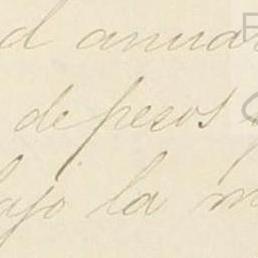 d anua
de pesos
ajo la m